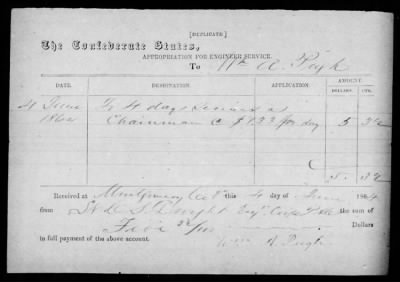 [DUPLICATE]
The Confederate States,
APPROPRIATION FOR ENGINEER SERVICE.
To Wm A. Pugh
DATE. DESIGNATION. APPLICATION. AMOUNT
DOLLARS. CTS.
4 June To 4 days services as 5 32
1864 Chainman @ $1.33 per day
5. 32
Received at Montgomery this 4 day of June 1864
from Engr Corps the sum of
Five 32/100 Dollars
in full payment of the above account.
Wm A. Pugh